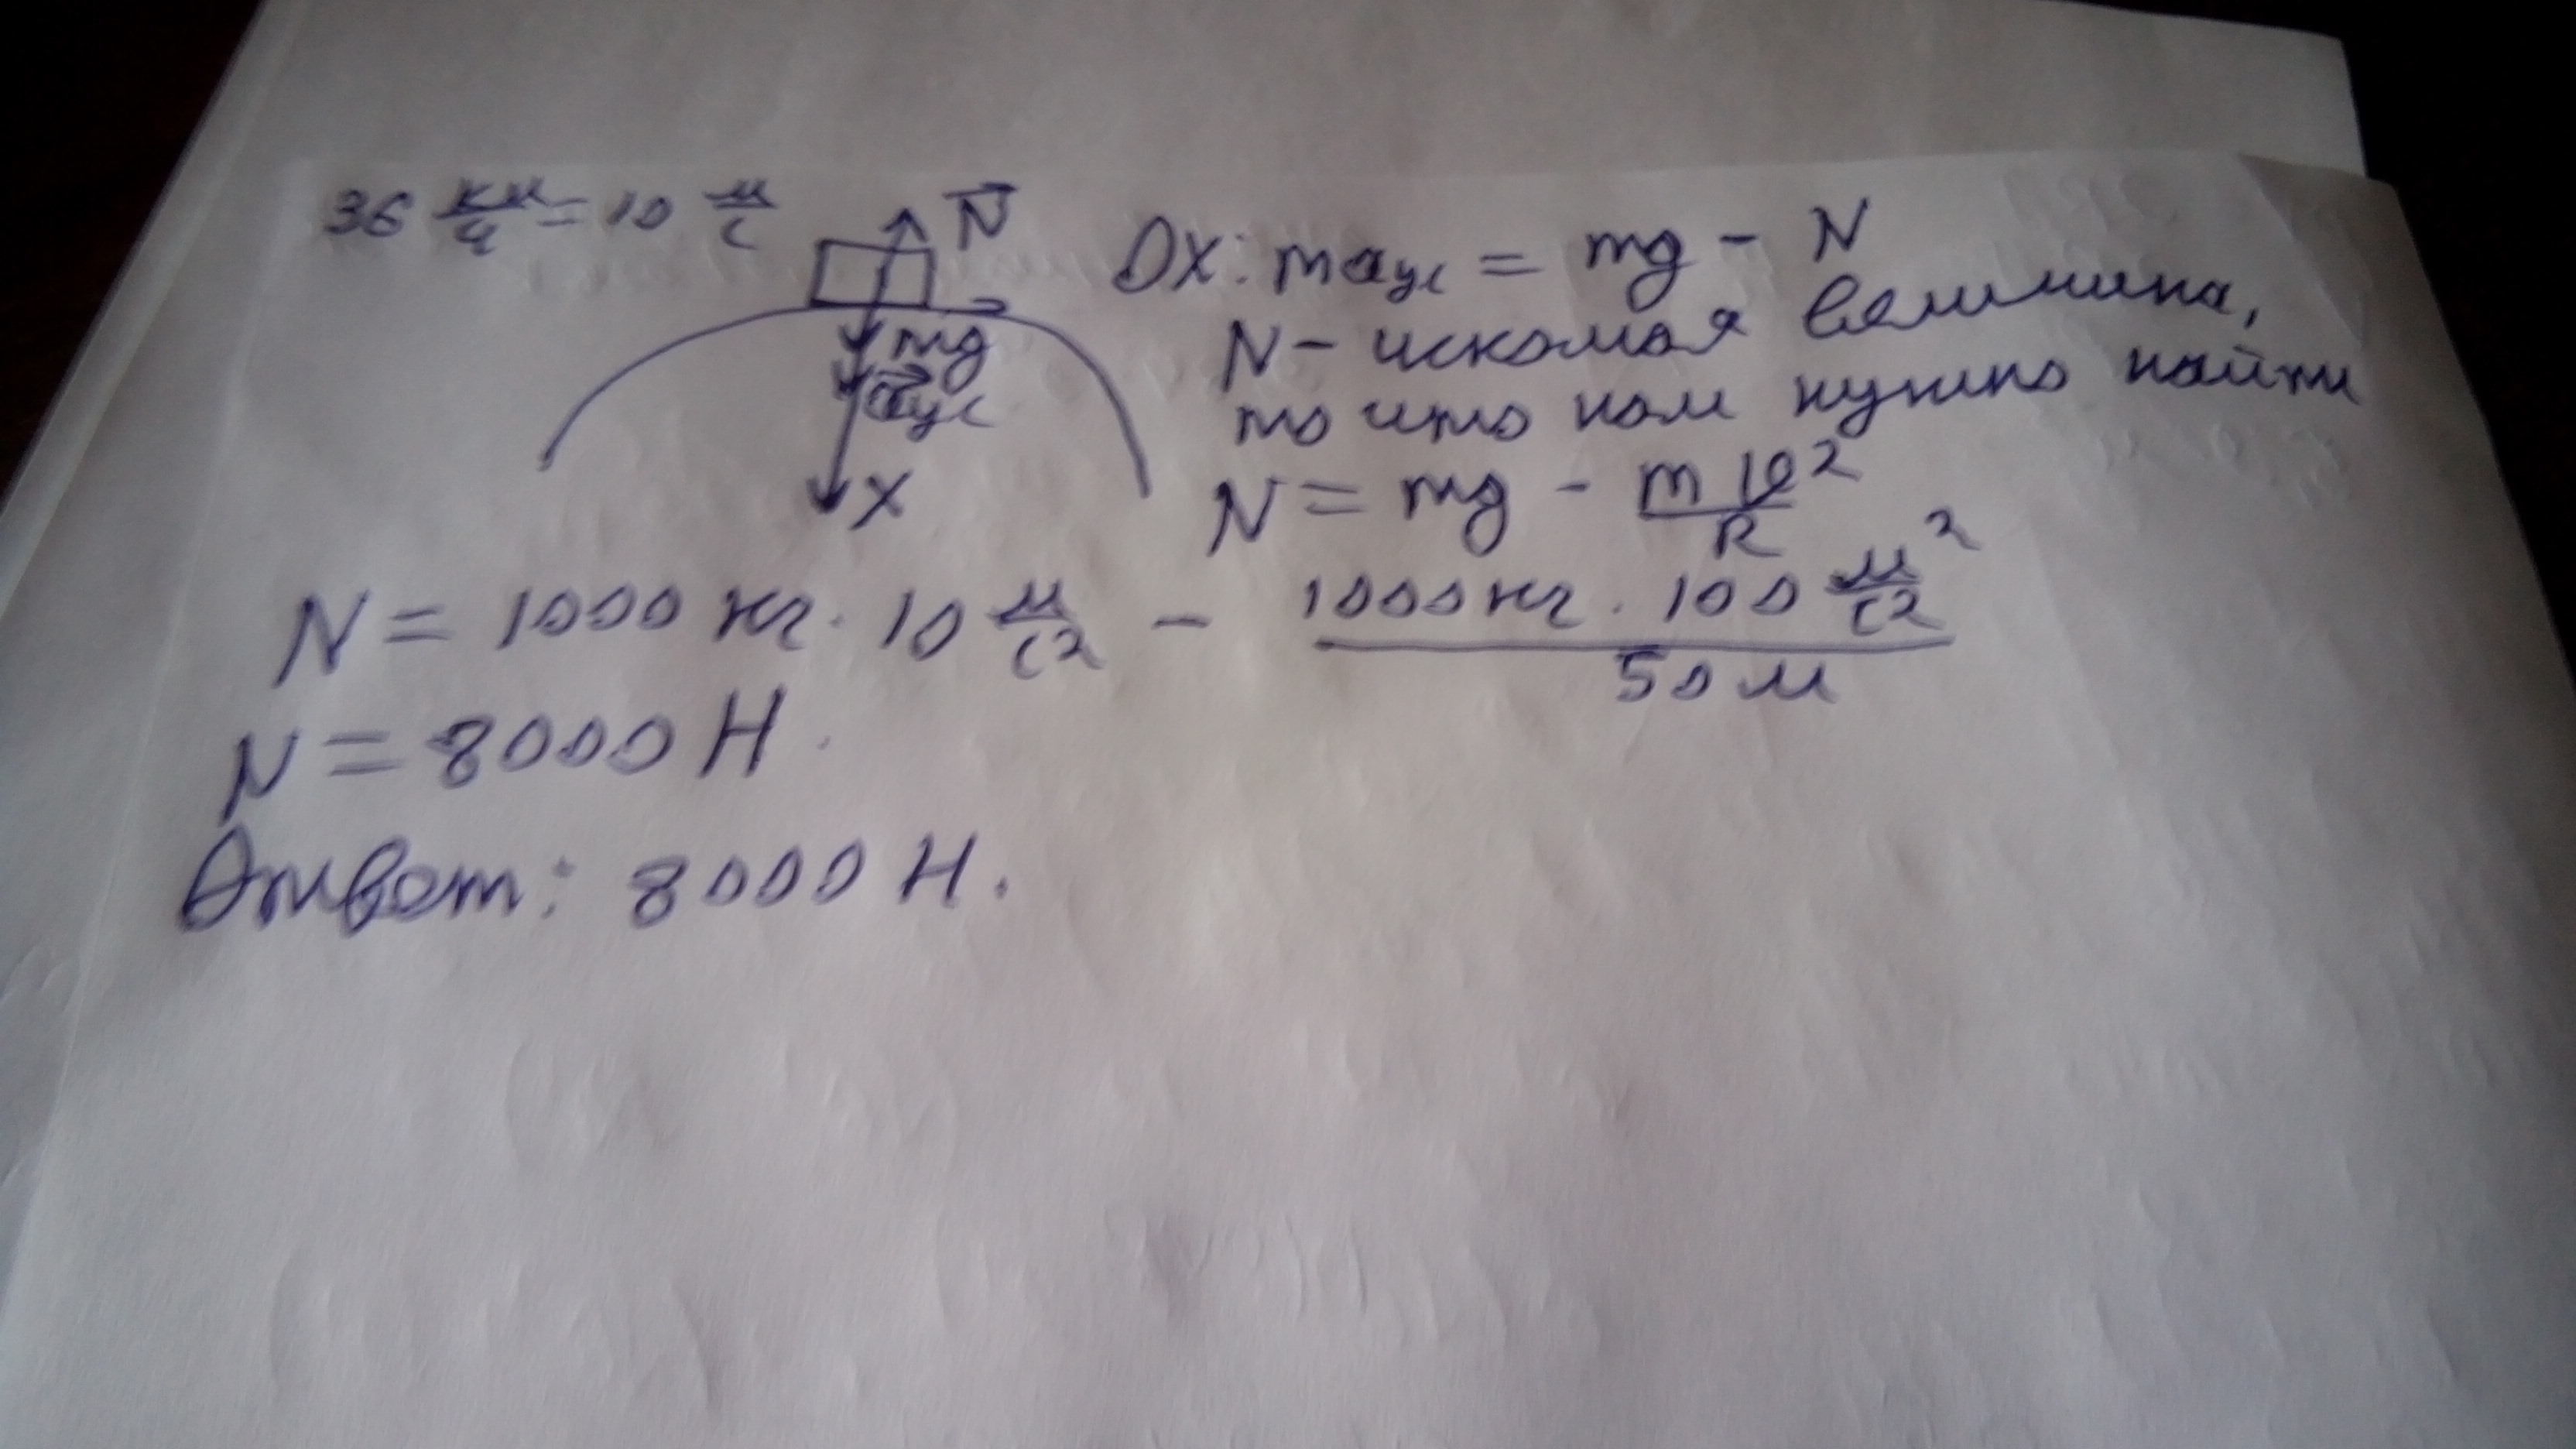 36 км/ч = 10 м/с
N
mg
aцс
X
OX: maцс = mg - N
N - искомая величина,
то что нам нужно найти
N = mg - mυ²/R
N = 1000 кг · 10 м/с² - 1000 кг · 100 м²/с² / 50 м
N = 8000 Н.
Ответ: 8000 Н.